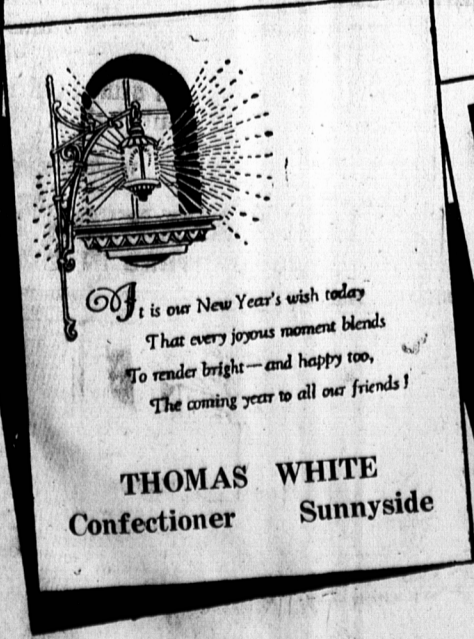 It is our New Year's wish today
That every joyous moment blends
To render bright—and happy too,
The coming year to all our friends!
THOMAS WHITE
Confectioner Sunnyside